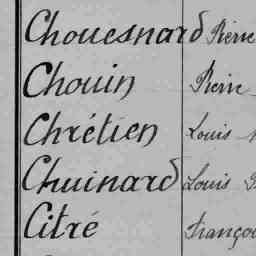 Chouesnard Pierre
Chouin Pierre
Chrétien Louis
Chuinard Louis
Citré François